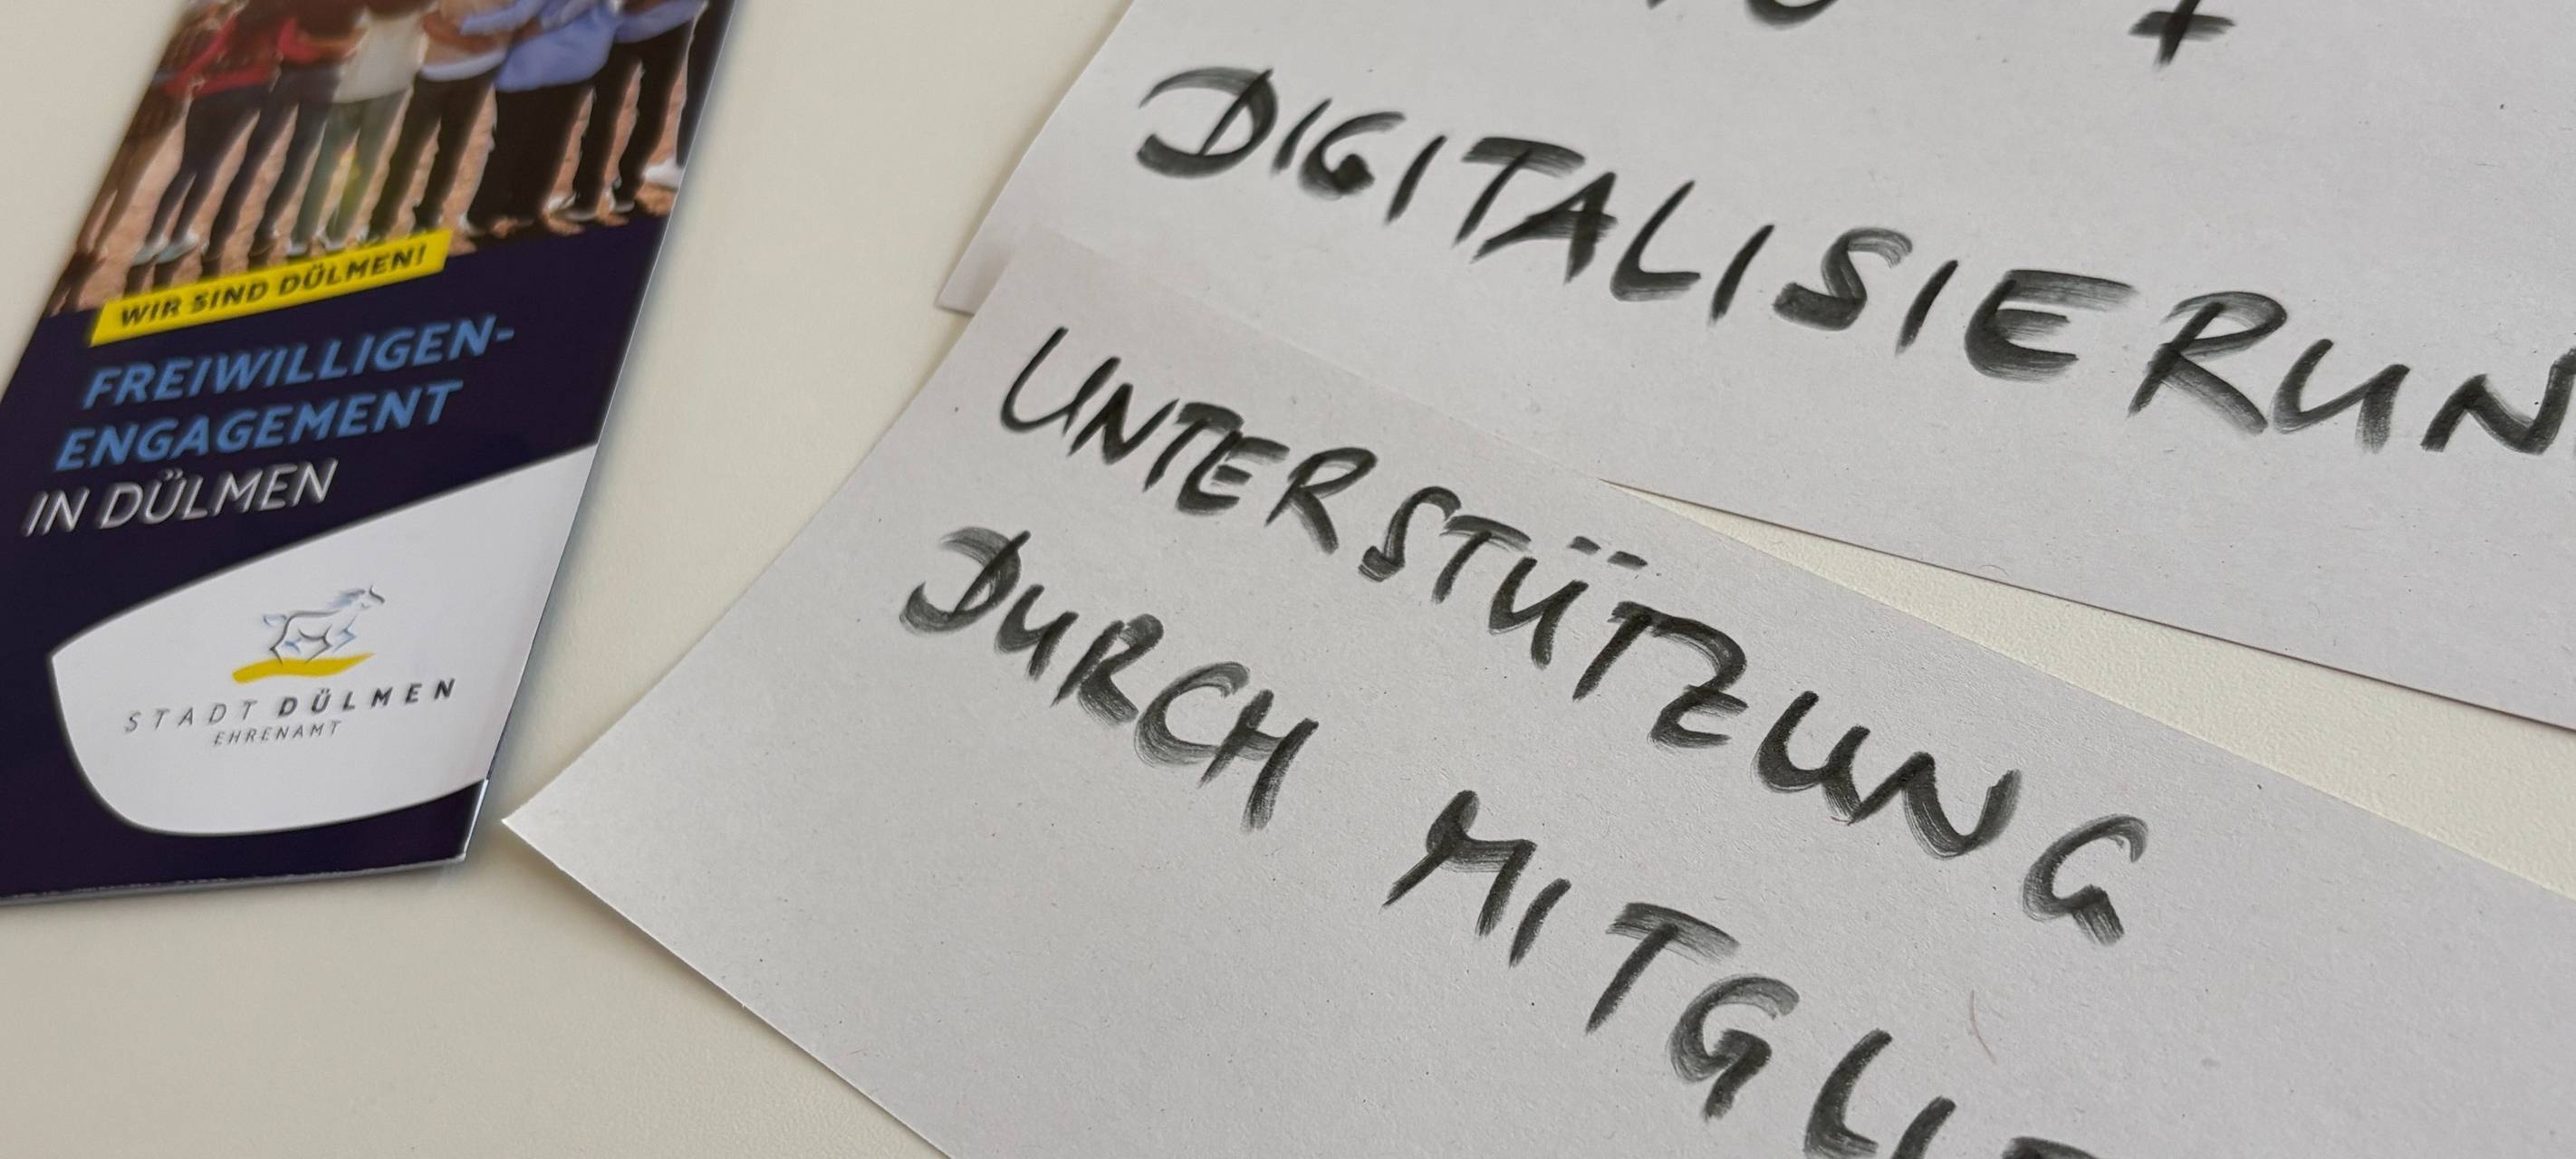 WIR SIND DÜLMEN!
FREIWILLIGEN-
ENGAGEMENT
IN DÜLMEN
STADT DÜLMEN
EHRENAMT
+
DIGITALISIERUN
UNTERSTÜTZUNG
DURCH MITGLIE